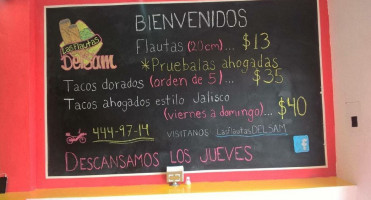 BIENVENIDOS
Las Flautas
DELSAM
Flautas (20cm)... $13
*Pruebalas ahogadas
Tacos dorados (orden de 5)... $35
Tacos ahogados estilo Jalisco
(viernes a domingo)... $40
444-97-14 VISITANOS LasFlautasDELSAM
f
DESCANSAMOS LOS JUEVES